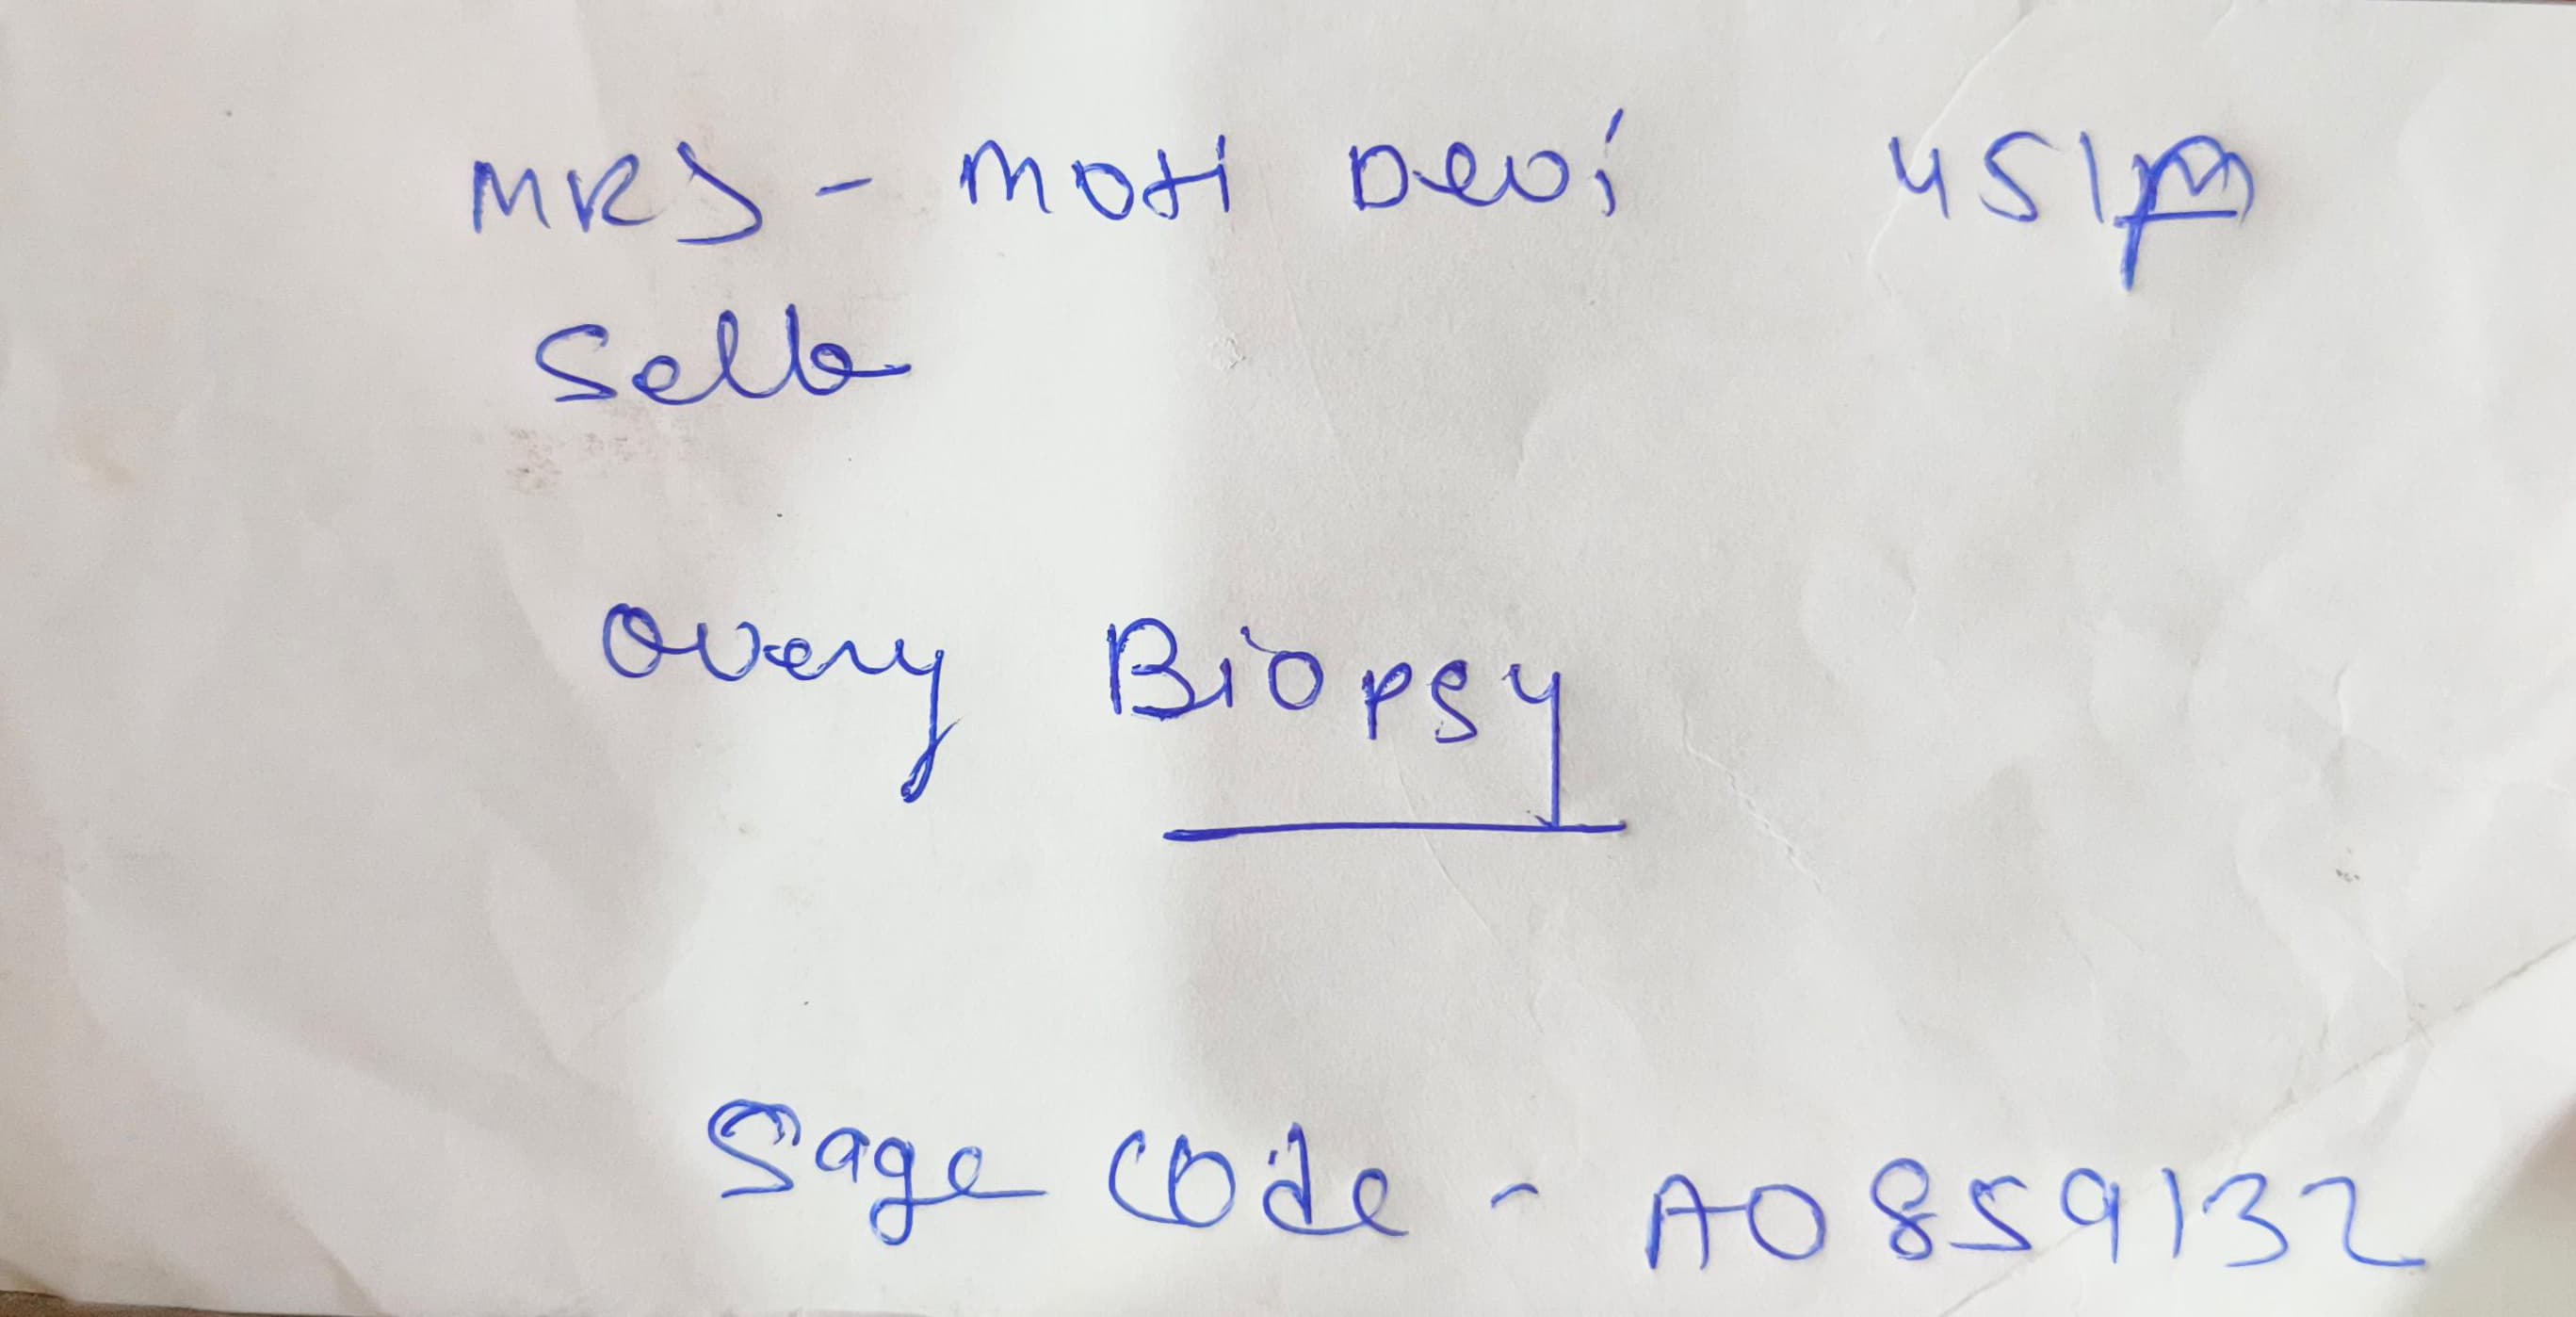 MRS - Moti Devi 45/F
Self
Overy Biopsy
Sage Code - A0859132